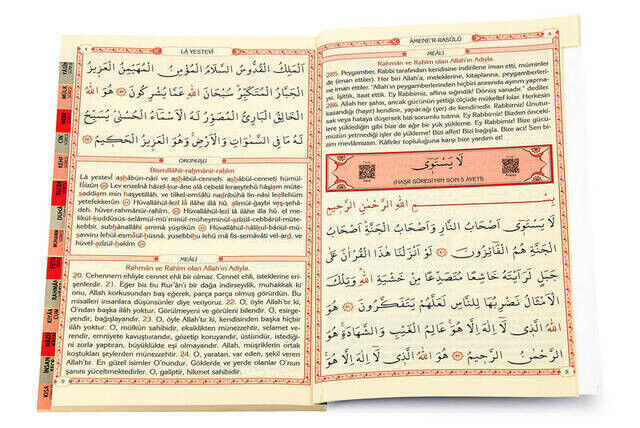 ÂMENE'R-RASÛLÜ
٨
MEÂLİ
Rahman ve Rahîm olan Allah'ın Adıyla.
285. Peygamber, Rabbi tarafından kendisine indirilene iman etti, müminler
de (iman ettiler). Her biri Allah'a, meleklerine, kitaplarına, peygamberleri-
ne iman ettiler. "Allah'ın peygamberlerinden hiçbiri arasında ayırım yapma-
yız. İşittik, itaat ettik. Ey Rabbimiz, affına sığındık! Dönüş sanadır." dediler.
286. Allah her şahsı, ancak gücünün yettiği ölçüde mükellef kılar. Herkesin
kazandığı (hayır) kendine, yapacağı (şer) de kendinedir. Rabbimiz! Unutur-
sak veya hataya düşersek bizi sorumlu tutma. Ey Rabbimiz! Bizden önceki-
lere yüklediğin gibi bize de ağır bir yük yükleme. Ey Rabbimiz! Bize gücü-
müzün yetmediği işler de yükleme! Bizi affet! Bizi bağışla. Bize acı! Sen bi-
zim mevlâmızsın. Kâfirler topluluğuna karşı bize yardım et!
لَا يَسْتَوٖى
(HAŞR SÛRESİ'NİN SON 5 AYETİ)
بِسْمِ اللّٰهِ الرَّحْمٰنِ الرَّحٖيمِ
لَا يَسْتَوٖى اَصْحَابُ النَّارِ وَاَصْحَابُ الْجَنَّةِ اَصْحَابُ
الْجَنَّةِ هُمُ الْفَٓائِزُونَ ﴿٢٠﴾ لَوْ اَنْزَلْنَا هٰذَا الْقُرْاٰنَ عَلٰى
جَبَلٍ لَرَاَيْتَهُ خَاشِعًا مُتَصَدِّعًا مِنْ خَشْيَةِ اللّٰهِ وَتِلْكَ
الْاَمْثَالُ نَضْرِبُهَا لِلنَّاسِ لَعَلَّهُمْ يَتَفَكَّرُونَ ﴿٢١﴾ هُوَ
اللّٰهُ الَّذٖى لَٓا اِلٰهَ اِلَّا هُوَ عَالِمُ الْغَيْبِ وَالشَّهَادَةِ هُوَ
الرَّحْمٰنُ الرَّحٖيمُ ﴿٢٢﴾ هُوَ اللّٰهُ الَّذٖى لَٓا اِلٰهَ اِلَّا هُوَ
8
LÂ YESTEVÎ
٩
اَلْمَلِكُ الْقُدُّوسُ السَّلَامُ الْمُؤْمِنُ الْمُهَيْمِنُ الْعَزٖيزُ
الْجَبَّارُ الْمُتَكَبِّرُ سُبْحَانَ اللّٰهِ عَمَّا يُشْرِكُونَ ﴿٢٣﴾ هُوَ اللّٰهُ
الْخَالِقُ الْبَارِئُ الْمُصَوِّرُ لَهُ الْاَسْمَٓاءُ الْحُسْنٰى يُسَبِّحُ
لَهُ مَا فِى السَّمٰوَاتِ وَالْاَرْضِ وَهُوَ الْعَزٖيزُ الْحَكٖيمُ ﴿٢٤﴾
OKUNUŞU
Bismillâhir-rahmânir-rahîm
Lâ yestevî ashâbün-nâri ve ashâbül-cenneh. ashâbül-cenneti hümül-
fâizûn (20) Lev enzelnâ hâzel-kur-âne alâ cebelil leraeytehû hâşiam müte-
saddiam min haşyetillâh. ve tilkel-emsâlü nadribühâ lin-nâsi leallehüm
yetefekkerûn (21) Hüvallâhül-lezî lâ ilâhe illâ hû. alimül-ğaybi veş-şehâ-
deh. hüver-rahmânür-rahîm. (22) Hüvallâhül-lezî lâ ilâhe illâ hû. el me-
likül-kuddûsüs-selâmül-mü'minül-müheyminül-azîzül-cebbârül-müte-
kebbir. subhânallâhi ammâ yüşrikûn (23) Hüvallâhül-hâlikul-bâriül-mü-
savviru lehül-esmâül-hüsnâ. yusebbihu lehû mâ fis-semâvâti vel-ard, ve
hüvel-azîzül-hakîm (24)
MEÂLİ
Rahman ve Rahîm olan Allah'ın Adıyla.
20. Cehennem ehliyle cennet ehli bir olmaz. Cennet ehli, isteklerine eri-
şenlerdir. 21. Eğer biz bu Kur'ân'ı bir dağa indirseydik, muhakkak ki
onu, Allah korkusundan baş eğerek, parça parça olmuş görürdün. Bu
misalleri insanlara düşünsünler diye veriyoruz. 22. O, öyle Allah'tır ki,
O'ndan başka ilâh yoktur. Görülmeyeni ve görüleni bilendir. O, esirge-
yendir, bağışlayandır. 23. O, öyle Allah'tır ki, kendisinden başka hiçbir
ilâh yoktur. O, mülkün sahibidir, eksiklikten münezzehtir, selamet ve-
rendir, emniyete kavuşturandır, gözetip koruyandır, üstündür, istediği-
ni zorla yaptıran, büyüklükte eşi olmayandır. Allah, müşriklerin ortak
koştukları şeylerden münezzehtir. 24. O, yaratan, var eden, şekil veren
Allah'tır. En güzel isimler O'nundur. Göklerde ve yerde olanlar O'nun
şanını yüceltmektedirler. O, galiptir, hikmet sahibidir.
9
YÂSÎN
MÜLK
NEBE
CİN
KEHF
SECDE
DUHÂ
FETİH
RAHMÂN
KIYÂME
İNSAN
KISA